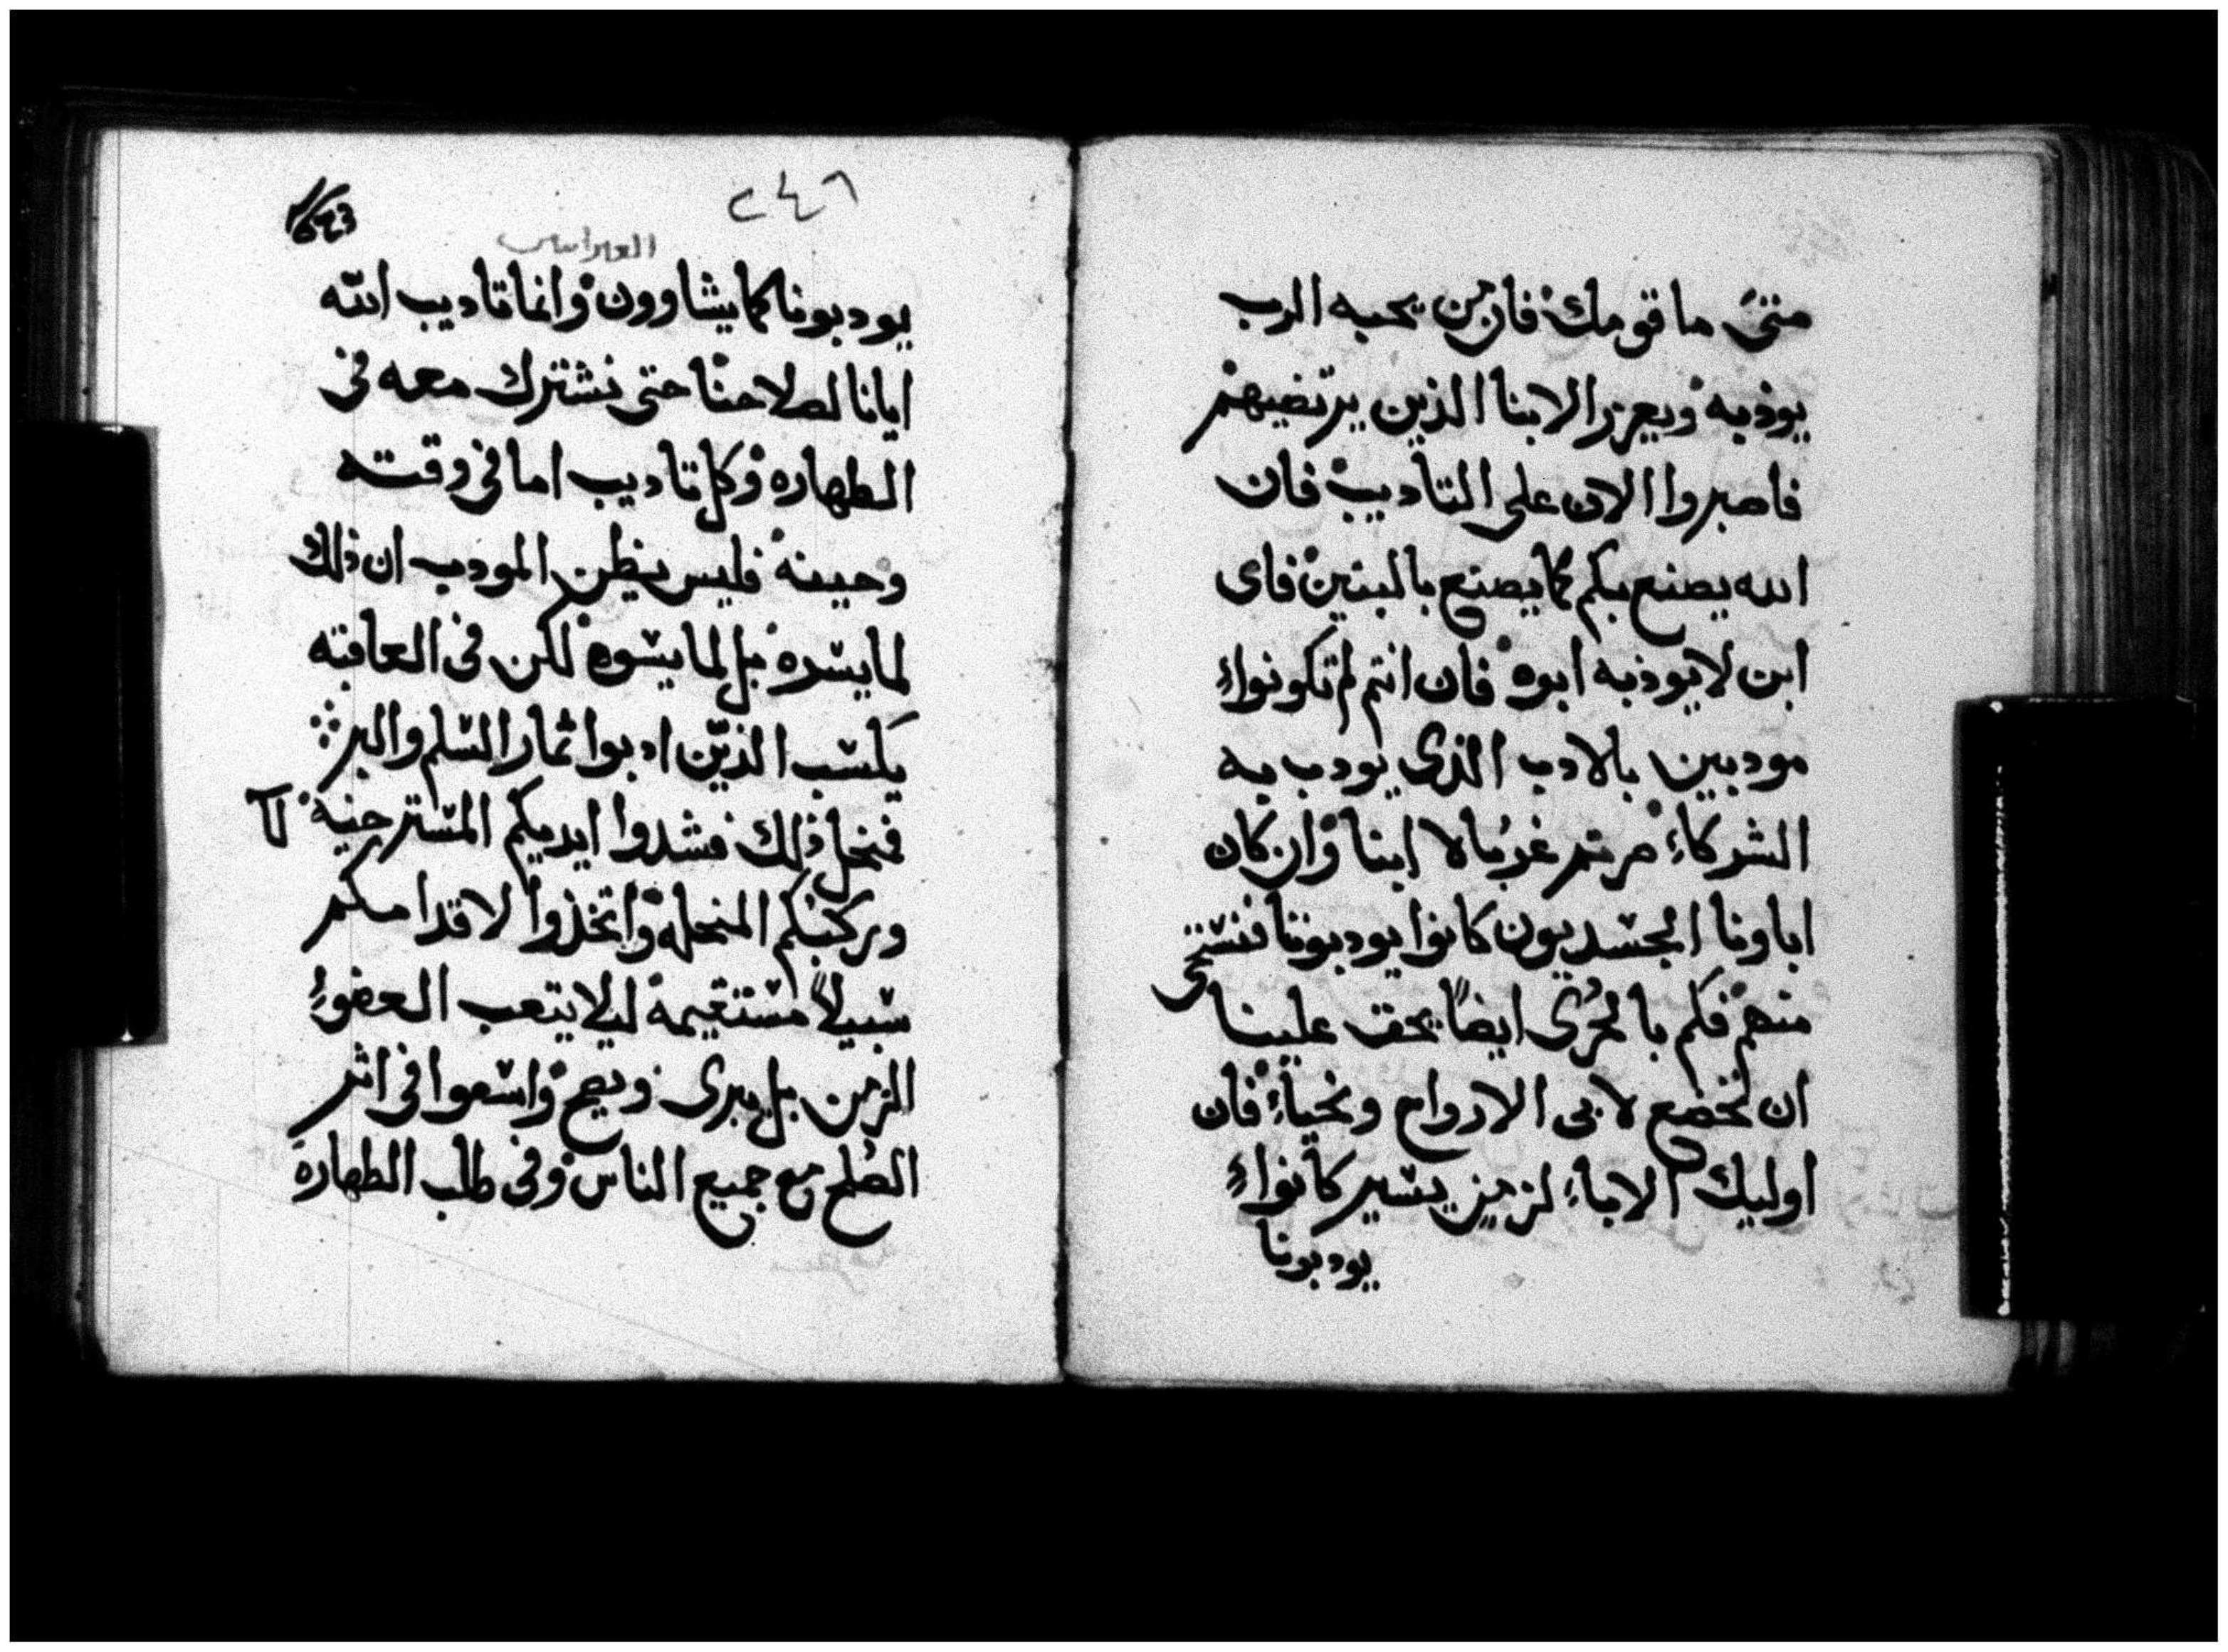 متى ما قومك فان من يحبه الرب
يوذبه ويعزر الابنا الذين يرتضيهم
فاصبروا الان على التاديب فان
الله يصنع بكم كما يصنع بالبنين فاى
ابن لا يوذبه ابوه فان انتم لم تكونوا
مودبين بالادب الذى يودب به
الشركاء صرتم غربا لا ابنا وان كان
اباونا الجسديون كانوا يودبوننا فنستحى
منهم فكم بالحرى ايضاً يحق علينا
ان نخضع لابى الارواح ونحياء فان
اوليك الاباء لزمن يسير كانوا
يودبونا
٢٤٦
العبرانيين
يودبونا كما يشاوون وانما تاديب الله
ايانا لصلاحنا حتى نشترك معه فى
الطهاره وكل تاديب اما فى وقته
وحينه فليس يظن المودب ان ذلك
لما يسره بل لما يسوه لكن فى العاقبه
يكسب الذين ادبوا ثمار السلم والبر
فنحل ذلك فشدوا ايديكم المسترخيه
وركبكم المنحله واتخذوا لاقدامكم
سبيلاً مستقيمة ليلا يتعب العضو
الزمن بل يبرى ويصح واسعوا فى اثر
الصلح مع جميع الناس وفى طلب الطهارة